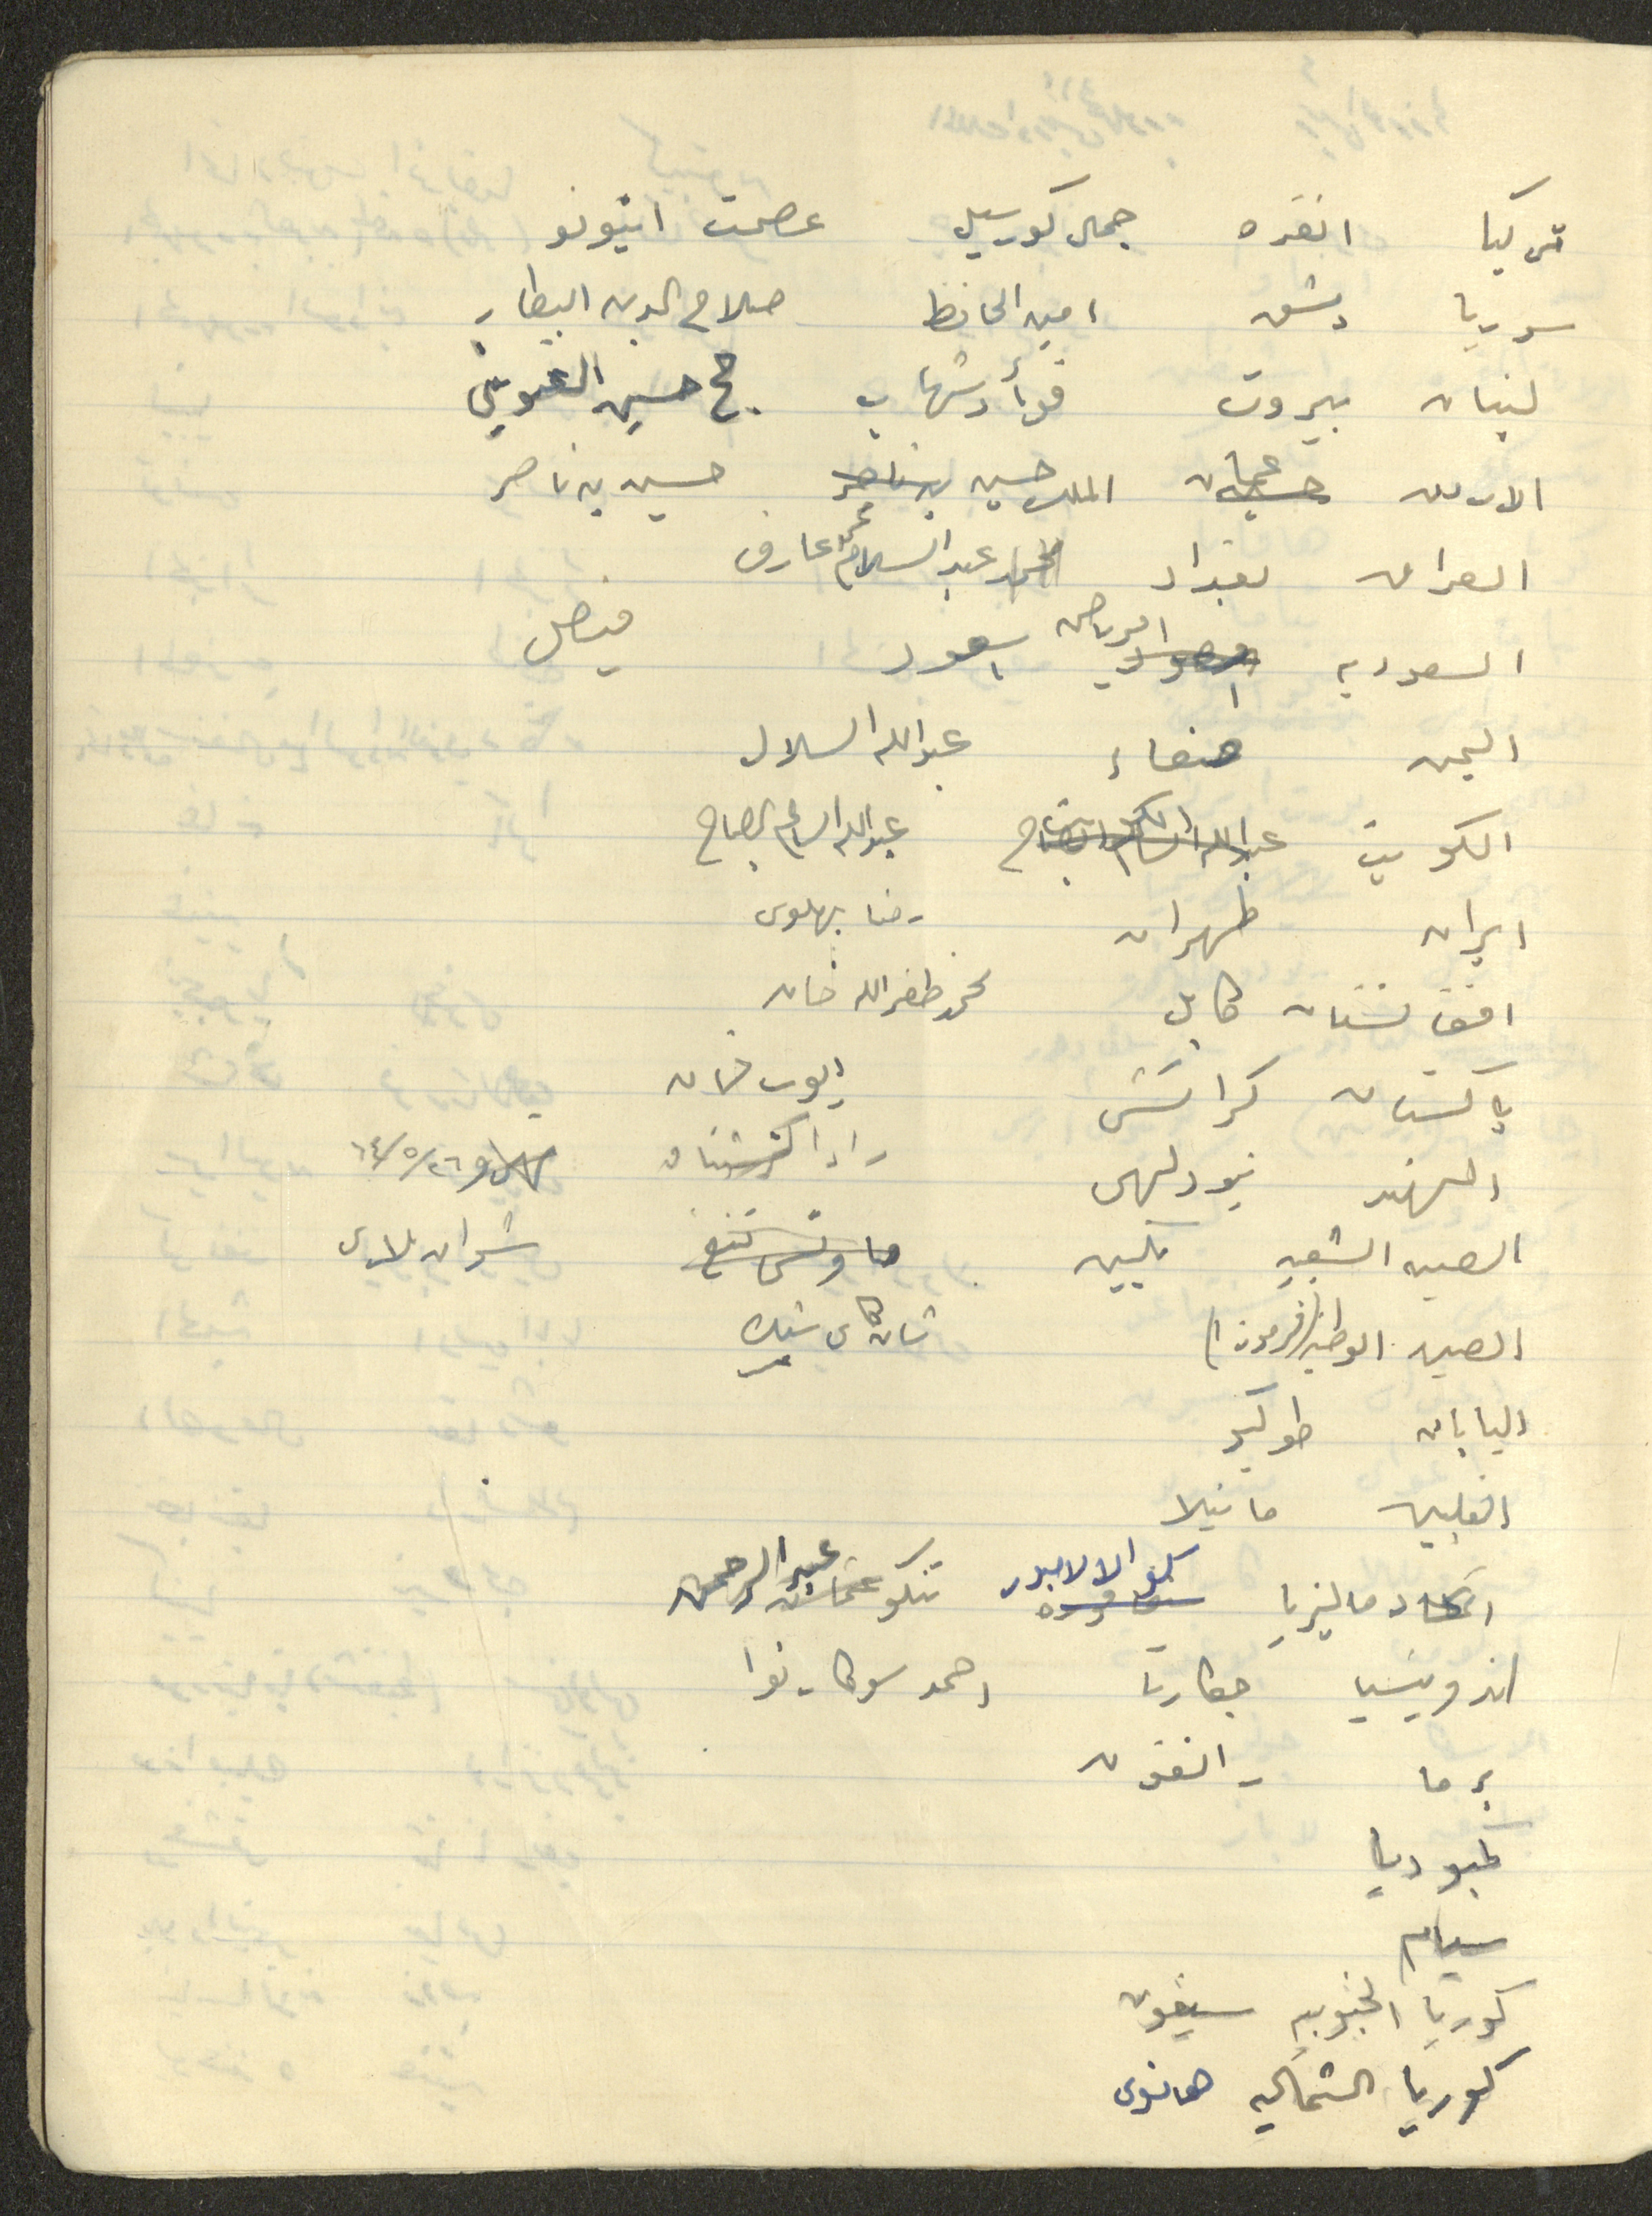 تركيا انقره جمال كورسيل عصمت اينونو
سوريا دمشق امين الحافظ صلاح الدين البيطار
لبنان بيروت فوأد شهاب ح حسين العويني
الاردن عمان الملك حسين بن ناصر حسين بن ناصر
العراق بغداد محمد عبد السلام محمد عارف
السعوديه الرياض سعود فيصل
اليمن صنعاء عبدالله السلال
الكويت عبدالله السالم الصباح الكويت عبدالله السالم الصباح
ايران طهران رضا بهلوى
افغانستان كابل محمد ظفر الله خان
باكستان كراتشى ايوب خان
الهند نيودلهى رادا كرشنان نهرو ٦٤/٥/٢٦
الصين الشعبيه بكين ماوتسى تنغ شوان لاى
الصين الوطنيه (فرموزا) شان كاى شيك
اليابان طوكيو
الفلبين مانيلا
اتحاد ماليزيا سنغافوره كوالالامبور تنكو عبد الرحمن
اندونيسيا جكارتا احمد سوكارنوا
برما رانغون
كمبوديا
سيام
كوريا الجنوبيه سيغون
كوريا الشماليه هانوى